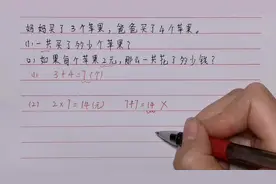 妈妈买了3个苹果，爸爸买了4个苹果。
(1)一共买了多少个苹果？
(2)如果每个苹果2元，那么一共花了多少钱？
(1) 3+4=7(个)
(2) 2×7=14(元) 7+7=14 ×